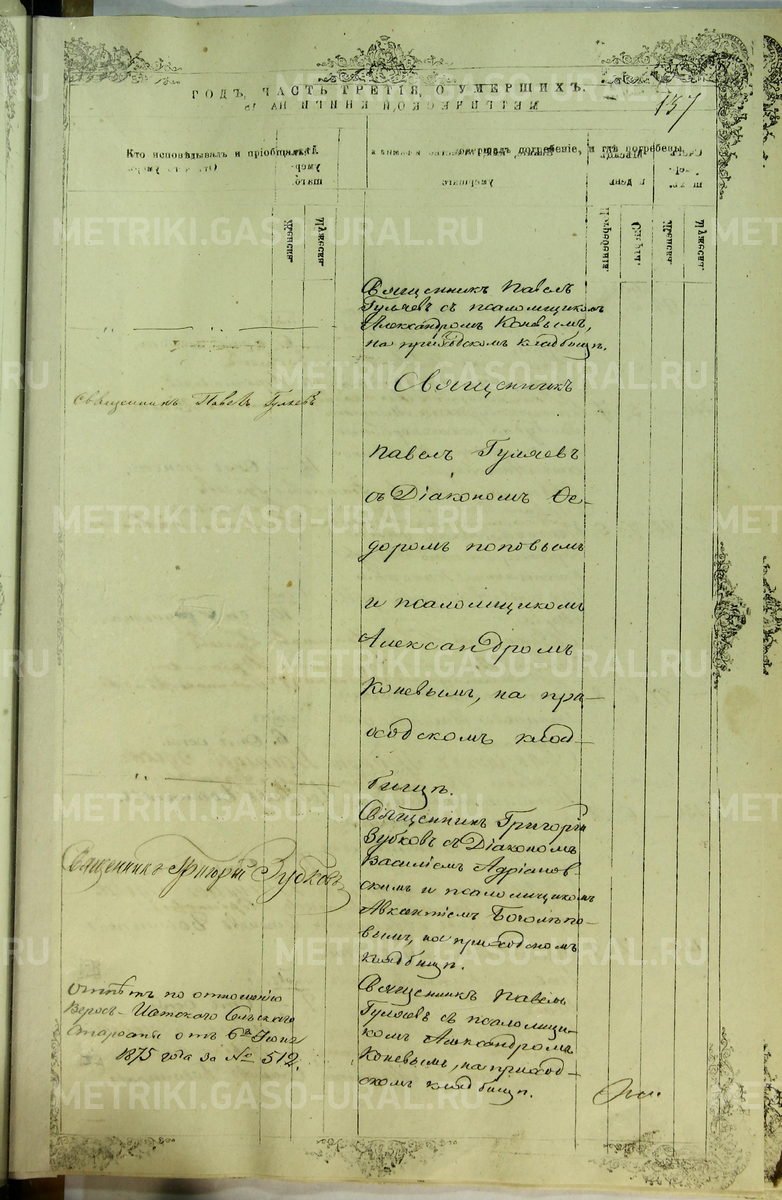 ГОДЪ, ЧАСТЬ ТРЕТІЯ, О УМЕРШИХЪ.
157
Кто исповѣдывалъ и пріобщалъ.
погребеніе, и гдѣ погребены.
Священникъ Павелъ
Гуляевъ съ псаломщикомъ
Александромъ Коневымъ,
на приходскомъ кладбищѣ.
Священникъ Павелъ Гуляевъ
Священникъ
Павелъ Гуляевъ
съ Діакономъ Ѳе-
доромъ Поповымъ
и псаломщикомъ
Александромъ
Коневымъ, на при-
ходскомъ клад-
бищѣ.
Священникъ Григорій Зубковъ
Священникъ Григорій
Зубковъ съ Діакономъ
Василіемъ Адріанов-
скимъ и псаломщикомъ
на приходскомъ
кладбищѣ.
Отпѣтъ по отношенію
Сельскаго
Старосты отъ 6го Іюня
1875 года за № 512.
Священникъ Павелъ
Гуляевъ съ псаломщи-
комъ Александромъ
Коневымъ, на приход-
скомъ кладбищѣ.
METRIKI.GASO-URAL.RU